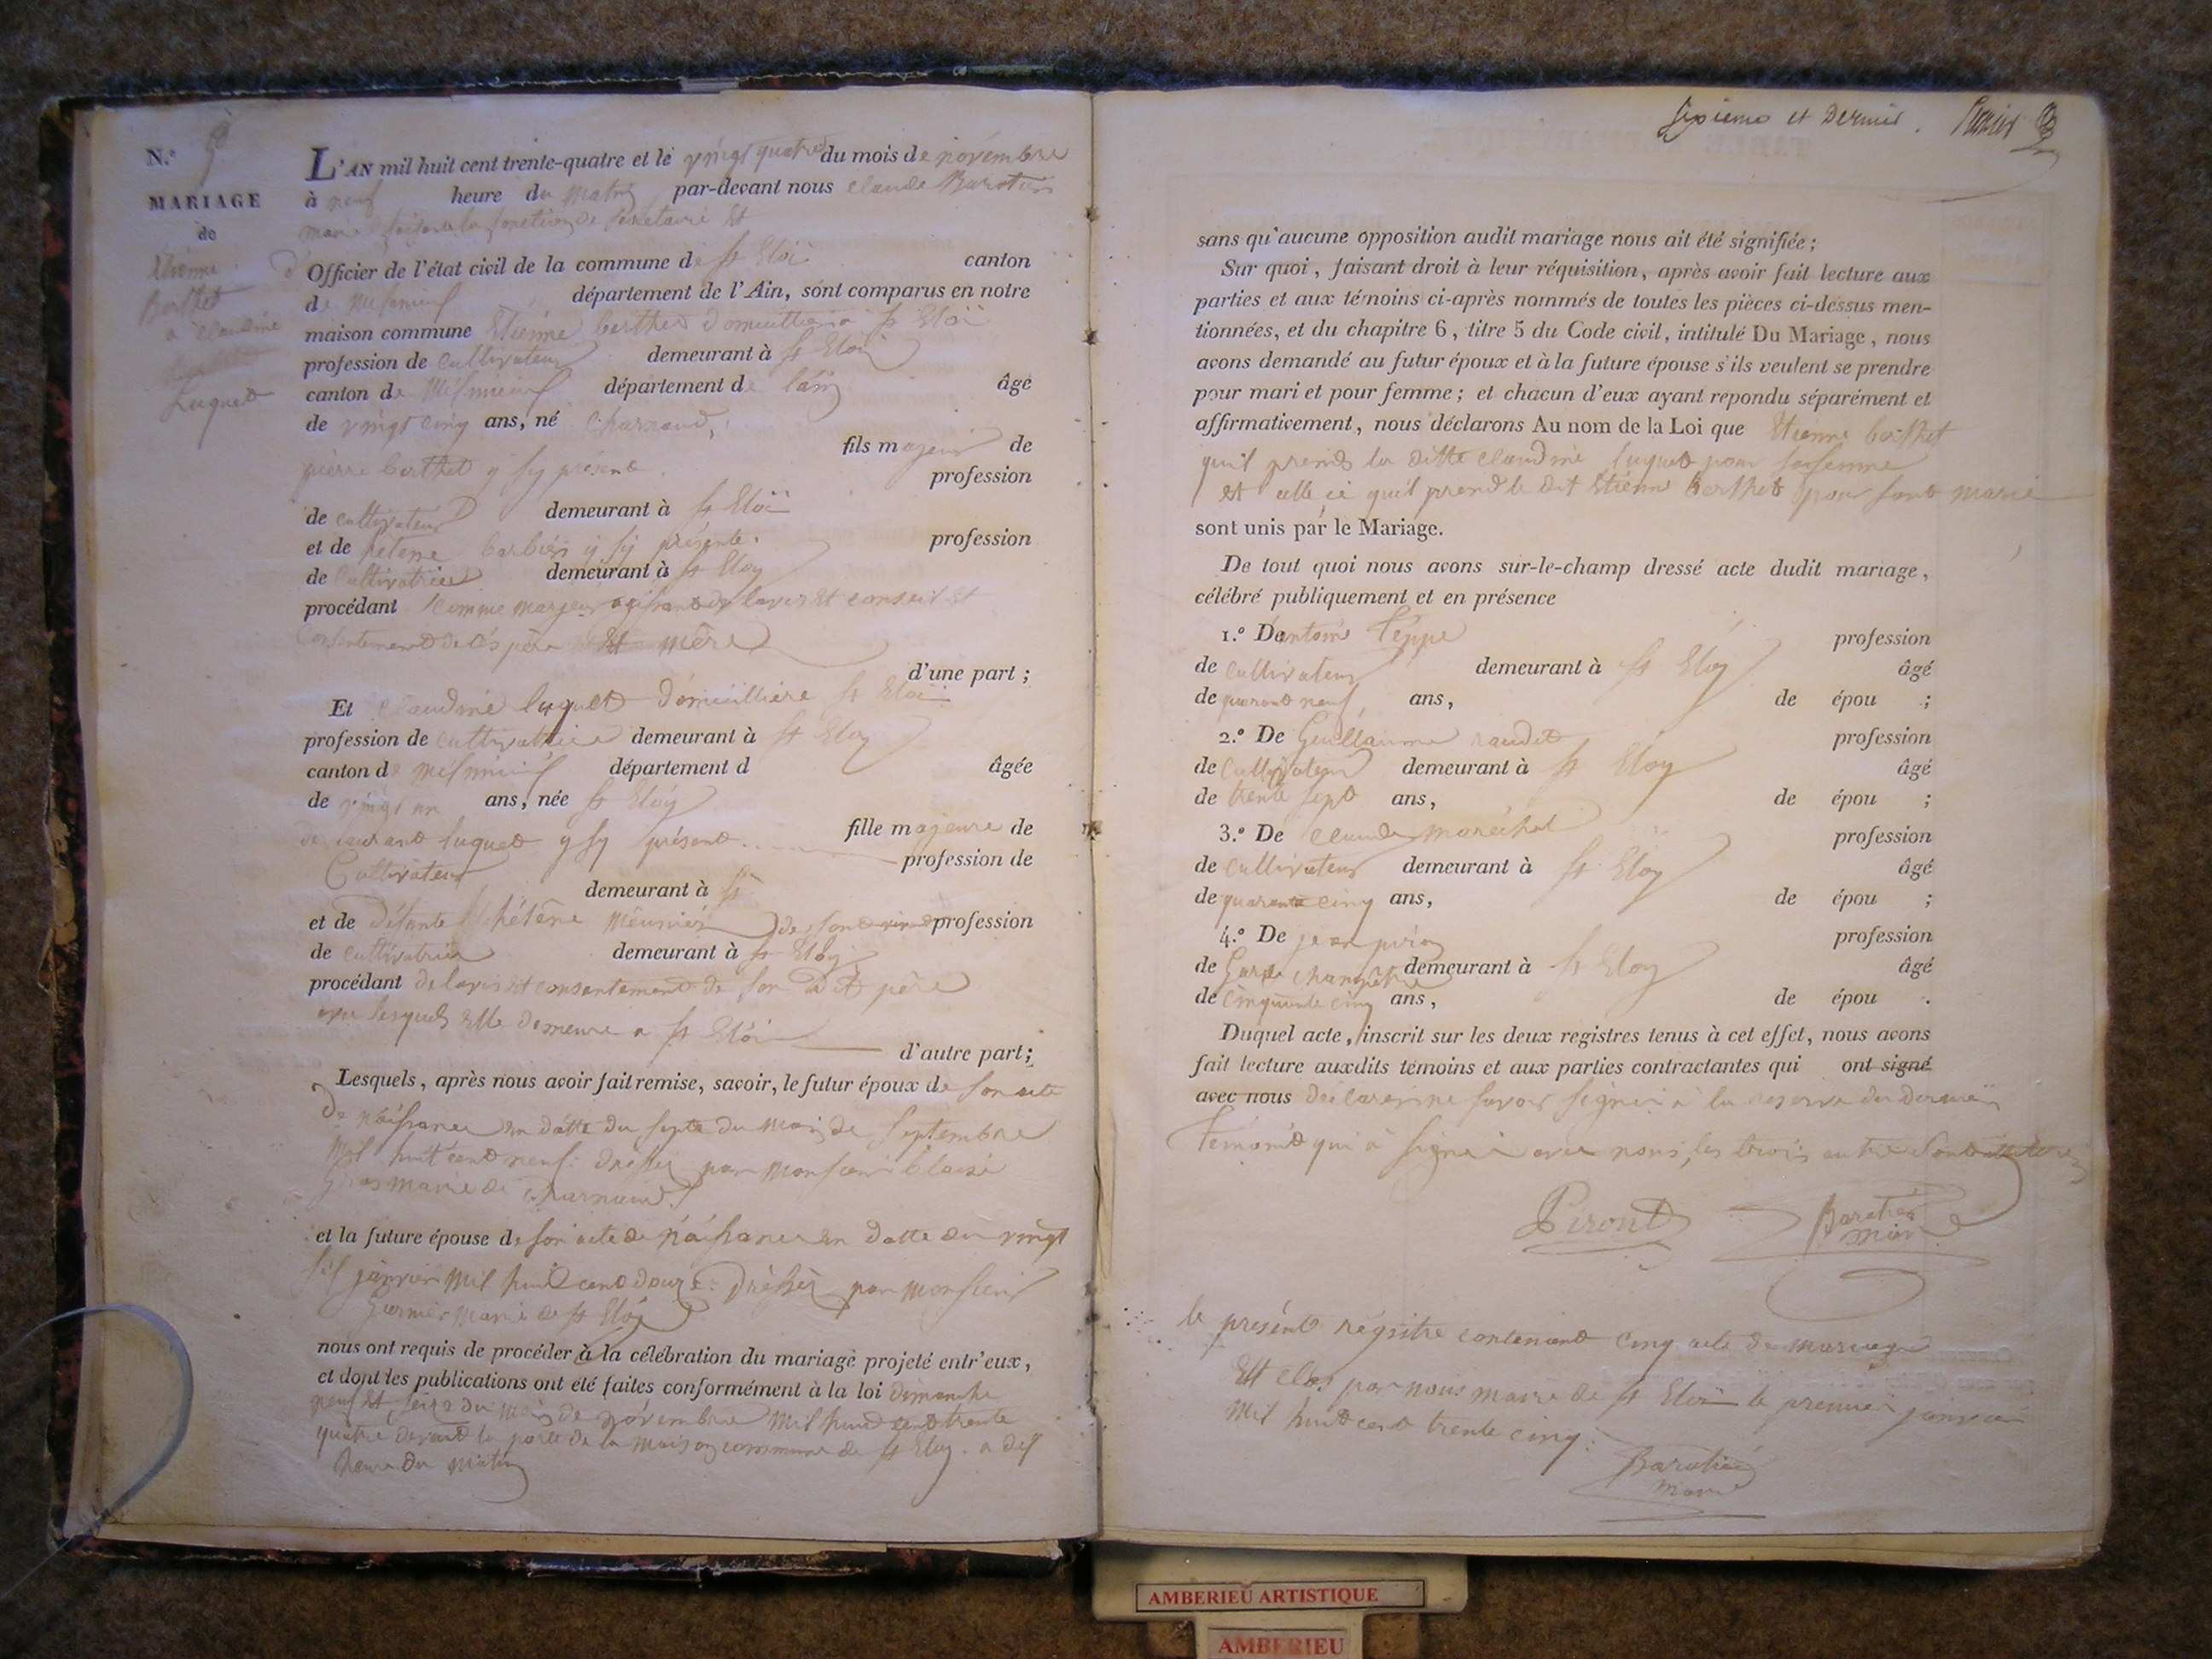 N.° 5
MARIAGE
de
Etienne
Berthet
a Claudine
Luquet
L'AN mil huit cent trente-quatre et le vingt quatre du mois de novembre
à neuf heure du matin par-devant nous Claude Baratier
maire faisant la fonction de secretaire et
d'Officier de l'état civil de la commune de St Eloi canton
de Meximieux département de l'Ain, sont comparus en notre
maison commune Etienne berthet domicillier à St Eloi
profession de cultivateur demeurant à St Eloi
canton de Meximieux département de lain âgé
de vingt cinq ans, né Charnoud,
fils majeur de
pierre berthet y sy présent profession
de cultivateur demeurant à St Eloi
et de hélenne barbier y sy présente. profession
de Cultivatrice demeurant à St Eloy
procédant comme marjeur agissant de lavis et conseil et
Consentement de ces père et mère
d'une part ;
Et Claudine luquet domicillière St Eloi
profession de cultivatrice demeurant à St Eloy
canton de Meximieux département d âgée
de vingt un ans, née St Eloy
fille majeure de
de laurant luquet y sy présent profession de
Cultivateur
demeurant à St
et de Défunte hélène Meunier de son vivant profession
de cultivatrice demeurant à St Eloy
procédant de lavis et consentement de son dit père
avec lesquels elle demeure a St Eloi
d'autre part ;
Lesquels, après nous avoir fait remise, savoir, le futur époux de son acte
de naissance en datte du septe du mois de septembre
Mil huit cent neuf. dresser par Monsieur blaise
Gras maire de charnoud
et la future épouse de son acte de naissance en datte du vingt
six janvier Mil huit cent douze. Dresser par Monsieur
Garnier maire de St Eloy
nous ont requis de procéder à la célébration du mariage projeté entr'eux,
et dont les publications ont été faites conformément à la loi dimanche
neuf et seize du mois de novembre Mil huit cent trente
quatre devant la porte de la maison commune de St Eloy. a dix
heure du matin
sixieme et dernier.
sans qu'aucune opposition audit mariage nous ait été signifiée ;
Sur quoi, faisant droit à leur réquisition, après avoir fait lecture aux
parties et aux témoins ci-après nommés de toutes les pièces ci-dessus men-
tionnées, et du chapitre 6, titre 5 du Code civil, intitulé Du Mariage, nous
avons demandé au futur époux et à la future épouse s'ils veulent se prendre
pour mari et pour femme ; et chacun d'eux ayant repondu séparément et
affirmativement, nous déclarons Au nom de la Loi que Etienne berthet
qu'il prends la ditte claudine luquet pour sa femme
et celle ci qu'il prend le dit Etienne Berthet pour sont marie
sont unis par le Mariage.
De tout quoi nous avons sur-le-champ dressé acte dudit mariage,
célébré publiquement et en présence
1.° De antoine Teppe profession
de cultivateur demeurant à St Eloy âgé
de quarant neuf, ans, de épou ;
2.° De Guillaume raudet profession
de Cultivateur demeurant à St Eloy âgé
de trente sept ans, de épou ;
3.° De claude maréchal profession
de cultivateur demeurant à St Eloy âgé
de quarante cinq ans, de épou ;
4.° De jean piron profession
de Garde champêtre demeurant à St Eloy âgé
de cinquante cinq ans, de épou .
Duquel acte, inscrit sur les deux registres tenus à cet effet, nous avons
fait lecture auxdits témoins et aux parties contractantes qui ont signé
avec nous declarer ne savoir signer à la reserve du dernier
temoint qui à signer avec nous, les trois autre sont
Piront Baratier
maire
le présent régistre contenant cinq acte de mariage
Et clos par nous maire de St Eloi le premier janvier
Mil huit cent trente cinq.
Baratier
maire
AMBERIEU ARTISTIQUE
AMBERIEU